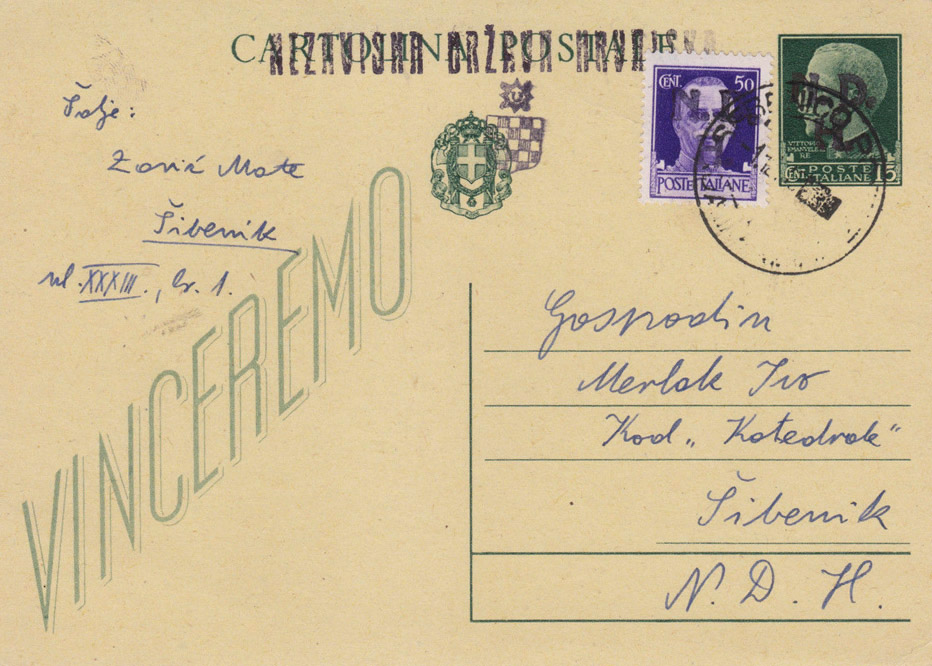 CARTOLINA POSTALE
NEZAVISNA DRŽAVA HRVATSKA
Šalje:
Zorić Mate
Šibenik
ul. XXXIII., br. 1.
CENT. 50
N. D.
POSTE ITALIANE
N. D.
H.
VITTORIO
EMANUELE
RE
POSTE
CENT. ITALIANE 15
U
VINCEREMO
Gospodin
Merlak Ivo
Kod „Katedrale“
Šibenik
N. D. H.